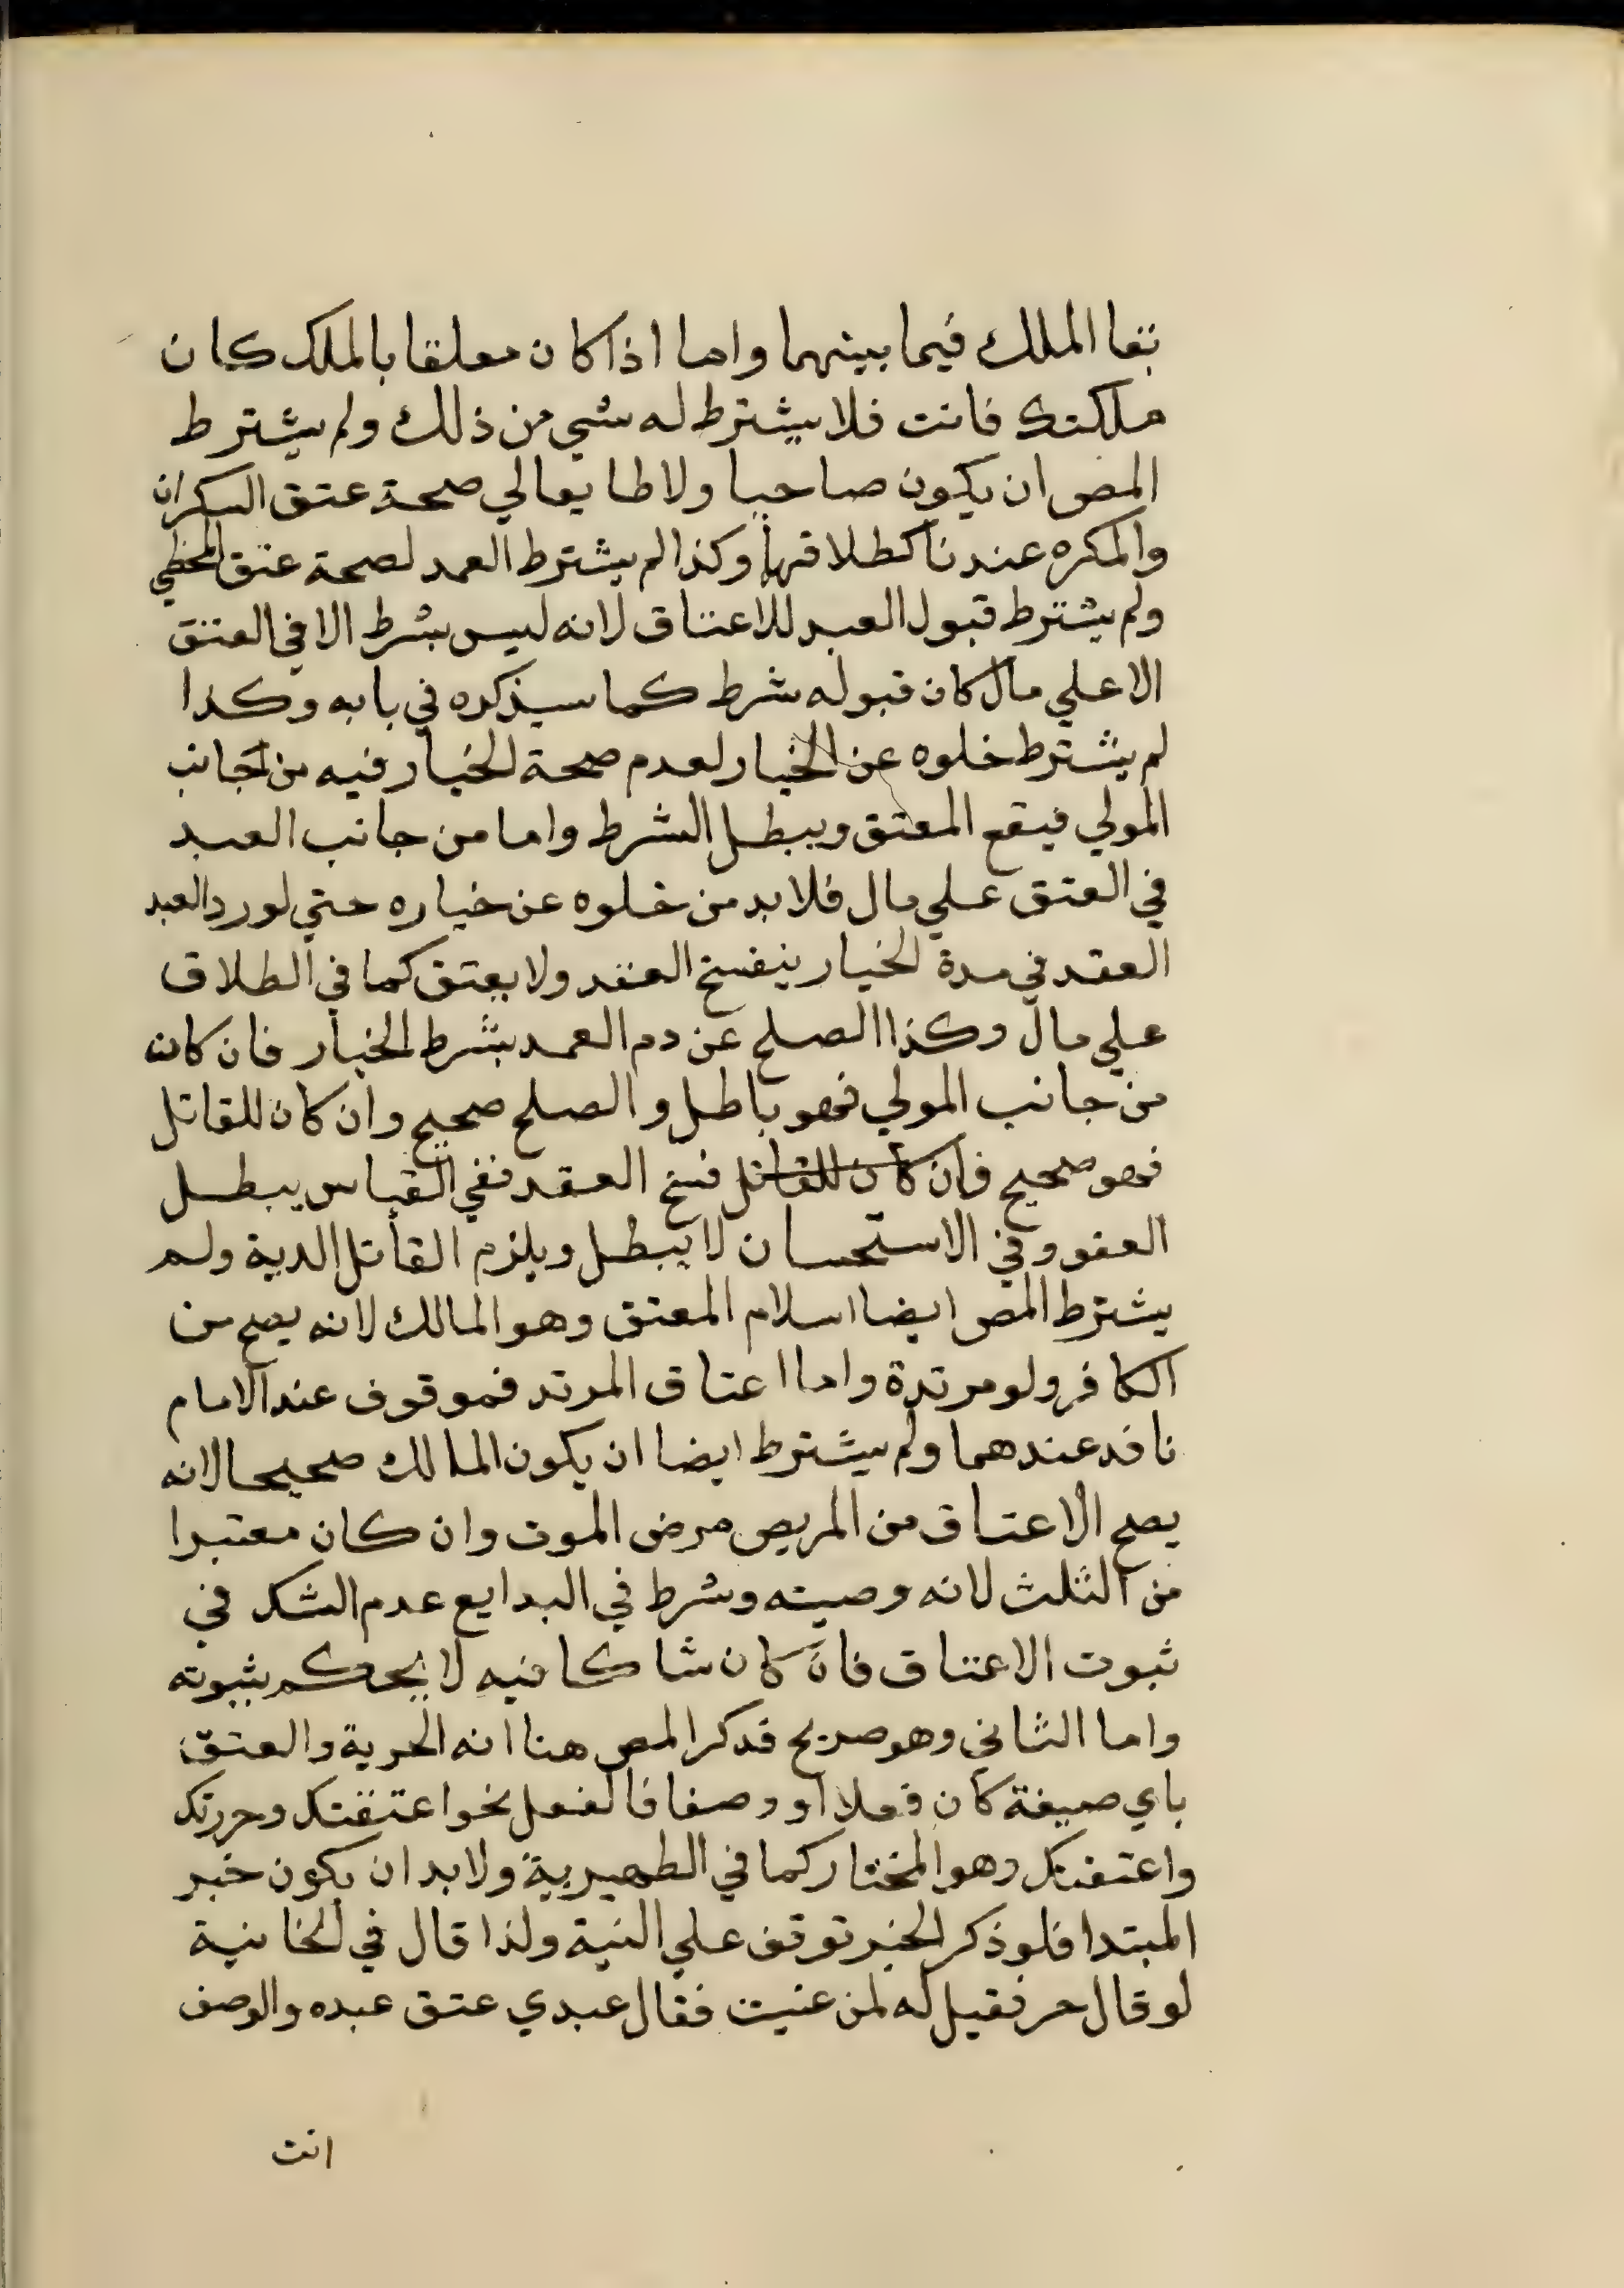 بقا الملك فيما بينهما واما اذا كان معلقا بالملك كان
ملكتك فانت فلا يشترط له شي من ذلك ولم يشترط
المص ان يكون صاحيا ولا طايعا لي صحة عتق السكران
والمكره عندنا كطلاقهما وكذا لم يشترط العمد لصحة عتق المخطي
ولم يشترط قبول العبد للاعتاق لانه ليس بشرط الا في العتق
الا علي مال كان قبوله شرط كما سيذكره في بابه وكذا
لم يشترط خلوه عن الخيار لعدم صحة الخيار فيه من جانب
المولي فيقع المعتق ويبطل الشرط واما من جانب العبد
في العتق علي مال فلا بد من خلوه عن خياره حتي لو رد العبد
العقد في مدة الخيار ينفسخ العقد ولا يعتق كما في الطلاق
علي مال وكذا الصلح عن دم العمد بشرط الخيار فان كان
من جانب المولي فهو باطل والصلح صحيح وان كان للقاتل
فهو صحيح فان كان للقاتل فسخ العقد ففي القياس يبطل
العفو وفي الاستحسان لا يبطل ويلزم القاتل الدية ولم
يشترط المص ايضا اسلام المعتق وهو المالك لانه يصح من
الكافر ولو مرتدة واما اعتاق المرتد فموقوف عند الامام
نافد عندهما ولم يشترط ايضا ان يكون المالك صحيحا لانه
يصح الاعتاق من المريض مرض الموت وان كان معتبرا
من الثلث لانه وصيته وشرط في البدايع عدم الشك في
ثبوت الاعتاق فان كان شاكا فيه لا يحكم بثبوته
واما الثاني وهو صريح فدكر المص هنا انه الحرية والعتق
باي صيغة كان فعلا او وصفا فالفعل نحو اعتقتك وحررتك
واعتقتك وهو المختار كما في الظهيرية ولا بد ان يكون خبر
المبتدا فلو ذكر الخبر توقف علي النية ولذا قال في الخانية
لو قال حر فقيل له لمن عنيت فقال عبدي عتق عبده والوصف
انت